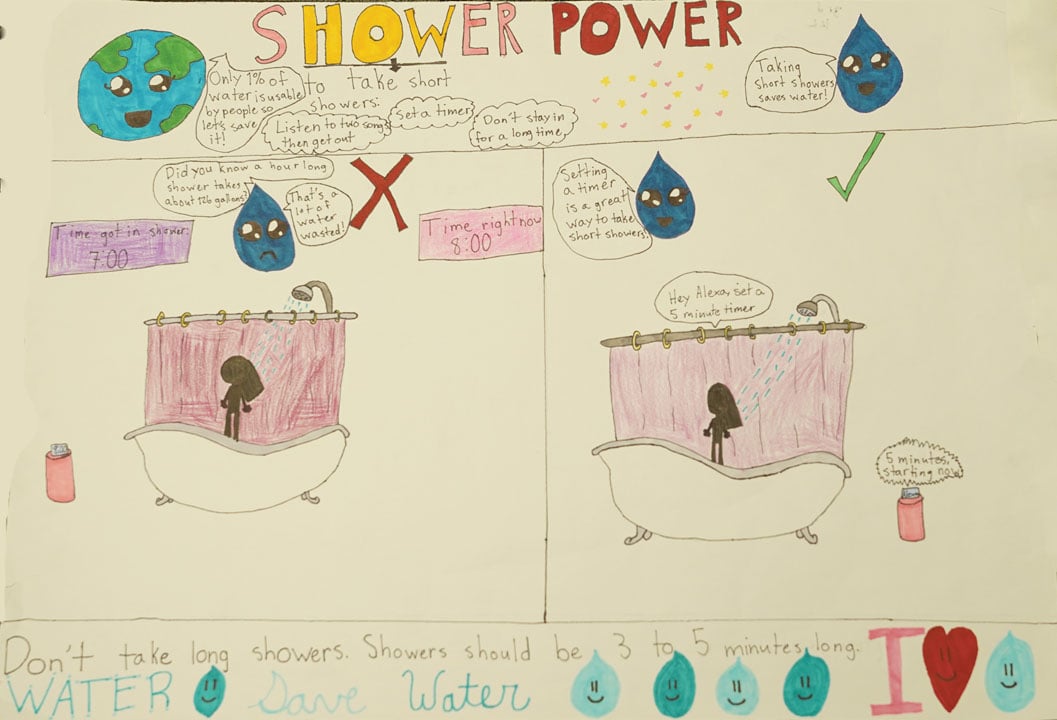 SHOWER POWER
Only 1% of
water is usable
by people so
let's save
it!
to take short
showers:
Listen to two songs
then get out
set a timer
Don't stay in
for a long time
Taking
short showers
saves water!
Did you know a hour long
shower takes
about 126 gallons?
That's a
lot of
water
wasted!
X
Time got in shower:
7:00
Time right now
8:00
Setting
a timer
is a great
way to take
short showers!
Hey Alexa, set a
5 minute timer
5 minutes,
starting now
Don't take long showers. Showers should be 3 to 5 minutes long.
I
WATER Save Water